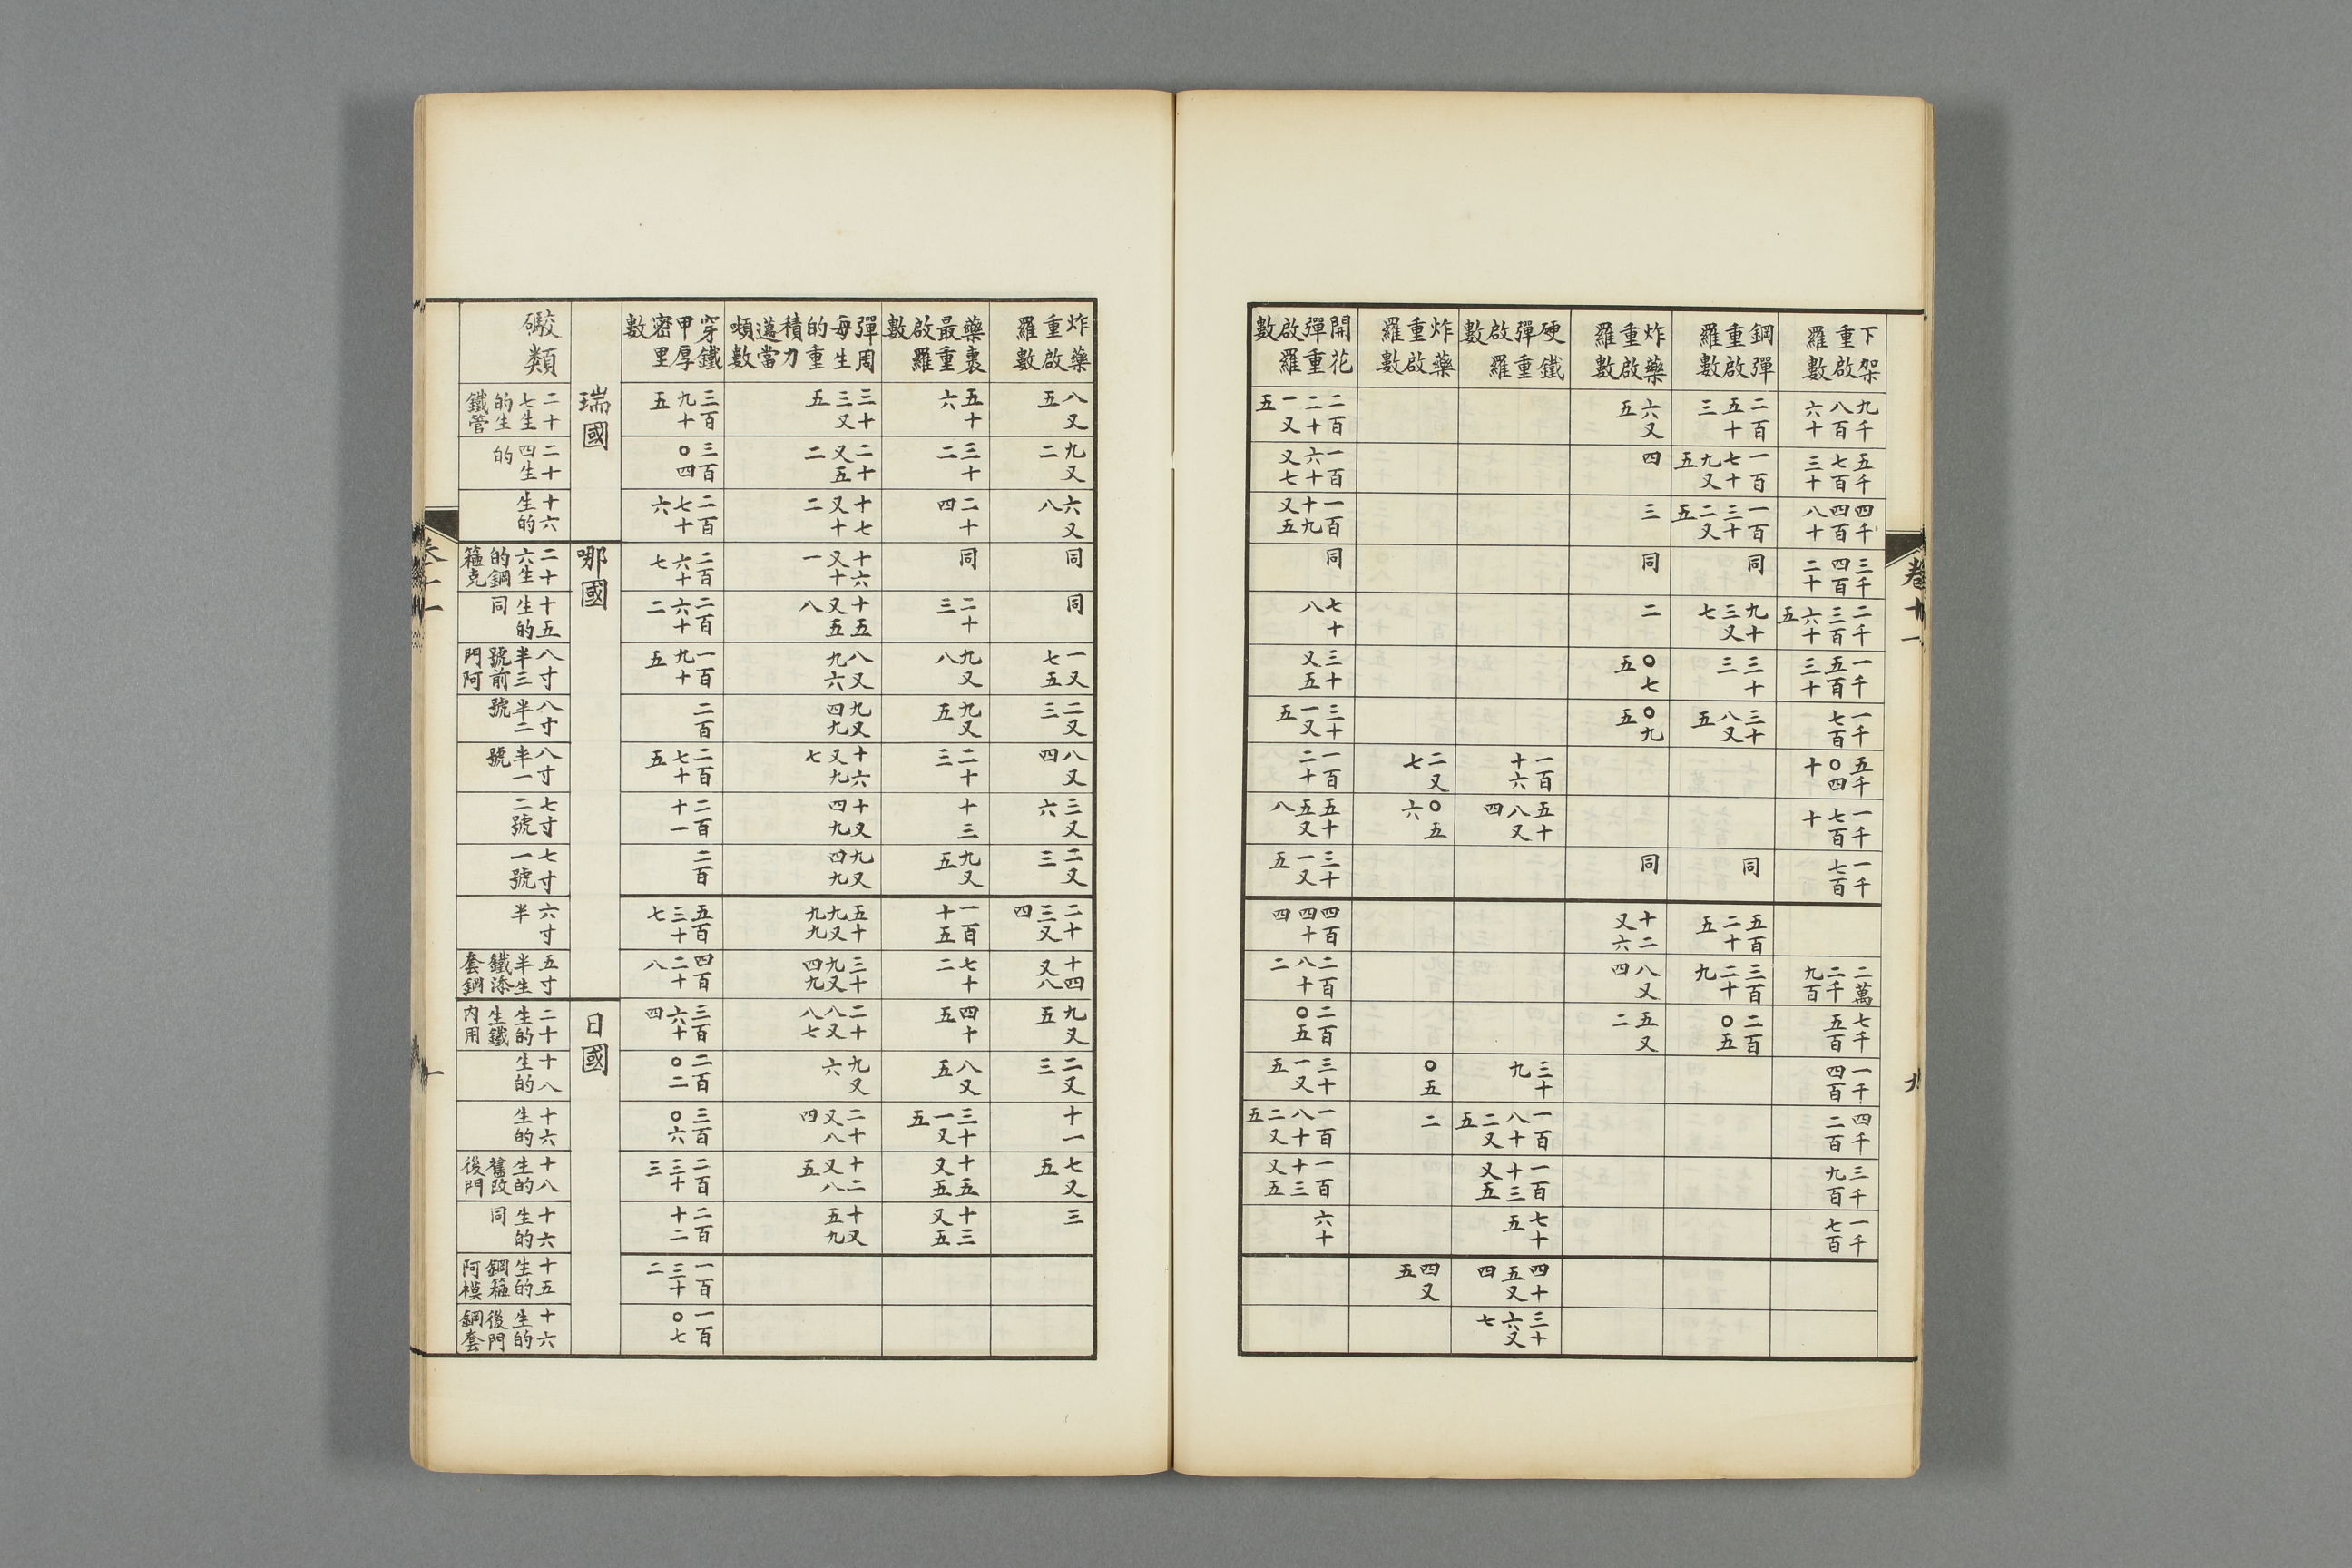 卷十一
九
下架重啟羅數
九千八百六十
五千七百三十
四千四百八十
三千四百二十
二千三百六十五
一千五百三十
一千七百
五千〇四十
一千七百十
一千七百
二萬二千九百
七千五百
一千四百
四千二百
三千九百
一千七百
鋼彈重啟羅數
二百五十三
一百七十九又五
一百三十二又五
同
九十三又七
三十三
三十八又五
同
五百二十五
三百二十九
二百〇五
炸藥重啟羅數
六又五
四
三
同
二
〇七五
〇九五
同
十二又六
八又四
五又二
硬鐵彈重啟羅數
一百十六
五十八又四
三十九
一百八十二又五
一百十三又五
七十五
四十五又四
三十六又七
炸藥重啟羅數
二又七
〇五六
〇五
二
四又五
開花彈重啟羅數
二百二十一又五
一百六十又七
一百十九又五
同
七十八
三十又五
三十一又五
一百二十
五十五又八
三十一又五
四百四十四
二百八十二
二百〇五
三十一又五
一百八十二又五
一百十三又五
六十
炸藥重啟羅數
八又五
九又二
六又八
同
同
一又七五
二又三
八又四
三又六
二又三
二十三又四
十四又八
九又五
二又三
十一
七又五
三
藥裹最重啟羅數
五十六
三十二
二十四
同
二十三
九又八
九又五
二十三
十三
九又五
一百十五
七十二
四十五
八又五
三十一又五
十五又五
十三又五
彈周每生的重積力邁當噸數
三十三又五
二十又五二
十七又十二
十六又十一
十五又五八
八又九六
九又四九
十六又九七
十又四九
九又四九
五十九又九九
三十九又四九
二十八又八七
九又六
二十又八四
十二又八五
十又五九
穿鐵甲厚密里數
三百九十五
三百〇四
二百七十六
二百六十七
二百六十二
一百九十五
二百
二百七十五
二百十一
二百
五百三十七
四百二十八
三百六十四
二百〇二
三百〇六
二百三十三
二百十二
一百三十二
一百〇七
瑞國
哪國
日國
礮類
二十七生的生鐵管
二十四生的
十六生的
二十六生的鋼箍克
十五生的同
八寸半三號前門阿
八寸半二號
八寸半一號
七寸二號
七寸一號
六寸半
五寸半生鐵漆套鋼
二十生的生鐵內用
十八生的
十六生的
十八生的舊改後門
十六生的同
十五生的鋼箍阿模
十六生的後門鋼套
卷十一